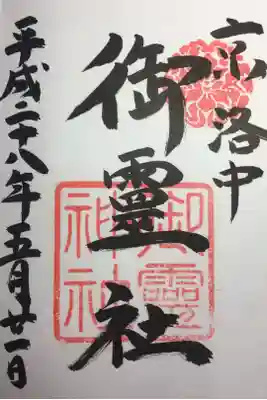 京洛中
御靈社
御靈神社
平成二十八年五月廿一日